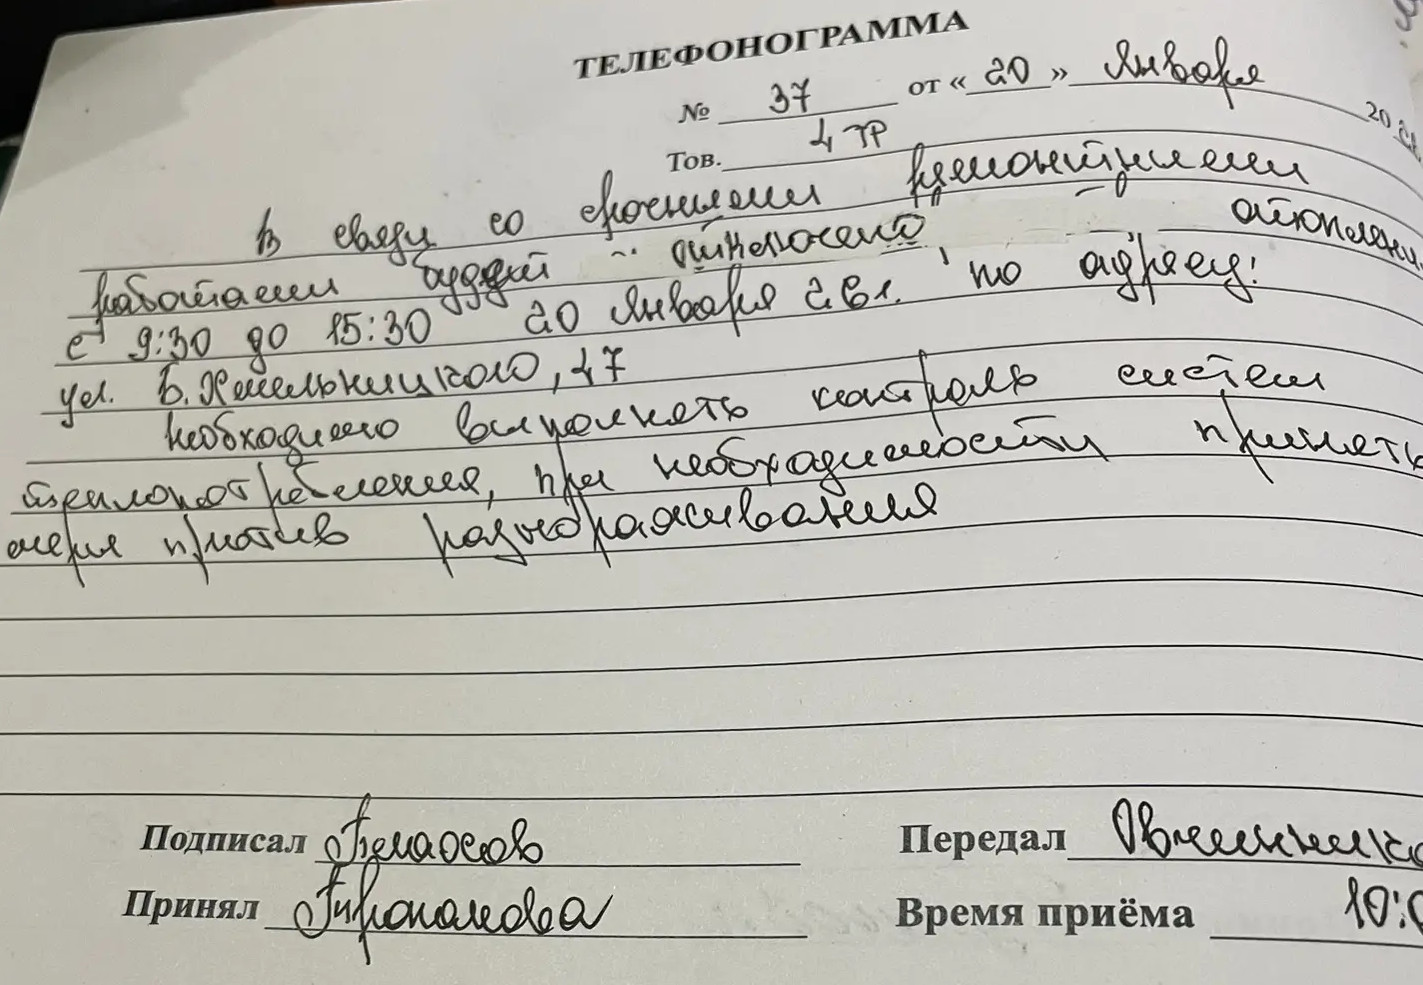 ТЕЛЕФОНОГРАММА
№ 37 от «20» Января 20
Тов. 4 ТР
В связи со срочными ремонтными
работами будет отключено отоплени
с 9:30 до 15:30 20 Января по адресу:
ул. Б. Хмельницкого, 47
Необходимо выполнять контроль систем
теплопотребления, при необходимости принять
меры против размораживания
Подписал
Передал Овчинник
Принял
Время приёма 10:0